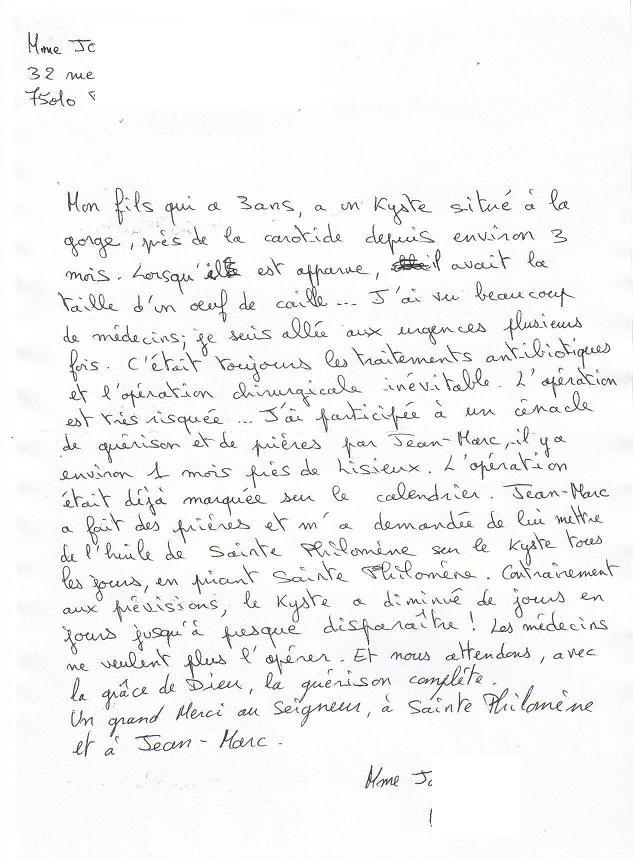 Mme Jo
32 rue
75010
Mon fils qui a 3 ans, a un Kyste situé à la
gorge, près de la carotide depuis environ 3
mois. Lorsqu'il est apparue, il avait la
taille d'un oeuf de caille ... J'ai vu beaucoup
de médecins; je suis allée aux urgences plusieurs
fois. C'était toujours les traitements antibiotiques
et l'opération chirurgicale inévitable. L'opération
est très risquée ... J'ai participée à un cénacle
de guérison et de prières par Jean-Marc, il y a
environ 1 mois près de Lisieux. L'opération
était déjà marquée sur le calendrier. Jean-Marc
a fait des prières et m'a demandée de lui mettre
de l'huile de Sainte Philomène sur le Kyste tous
les jours, en priant Sainte Philomène. Contrairement
aux prévisions, le Kyste a diminué de jours en
jours jusqu'à presque disparaître ! Les médecins
ne veulent plus l'opérer. Et nous attendons, avec
la grâce de Dieu, la guérison complète.
Un grand Merci au Seigneur, à Sainte Philomène
et à Jean-Marc.
Mme Jo